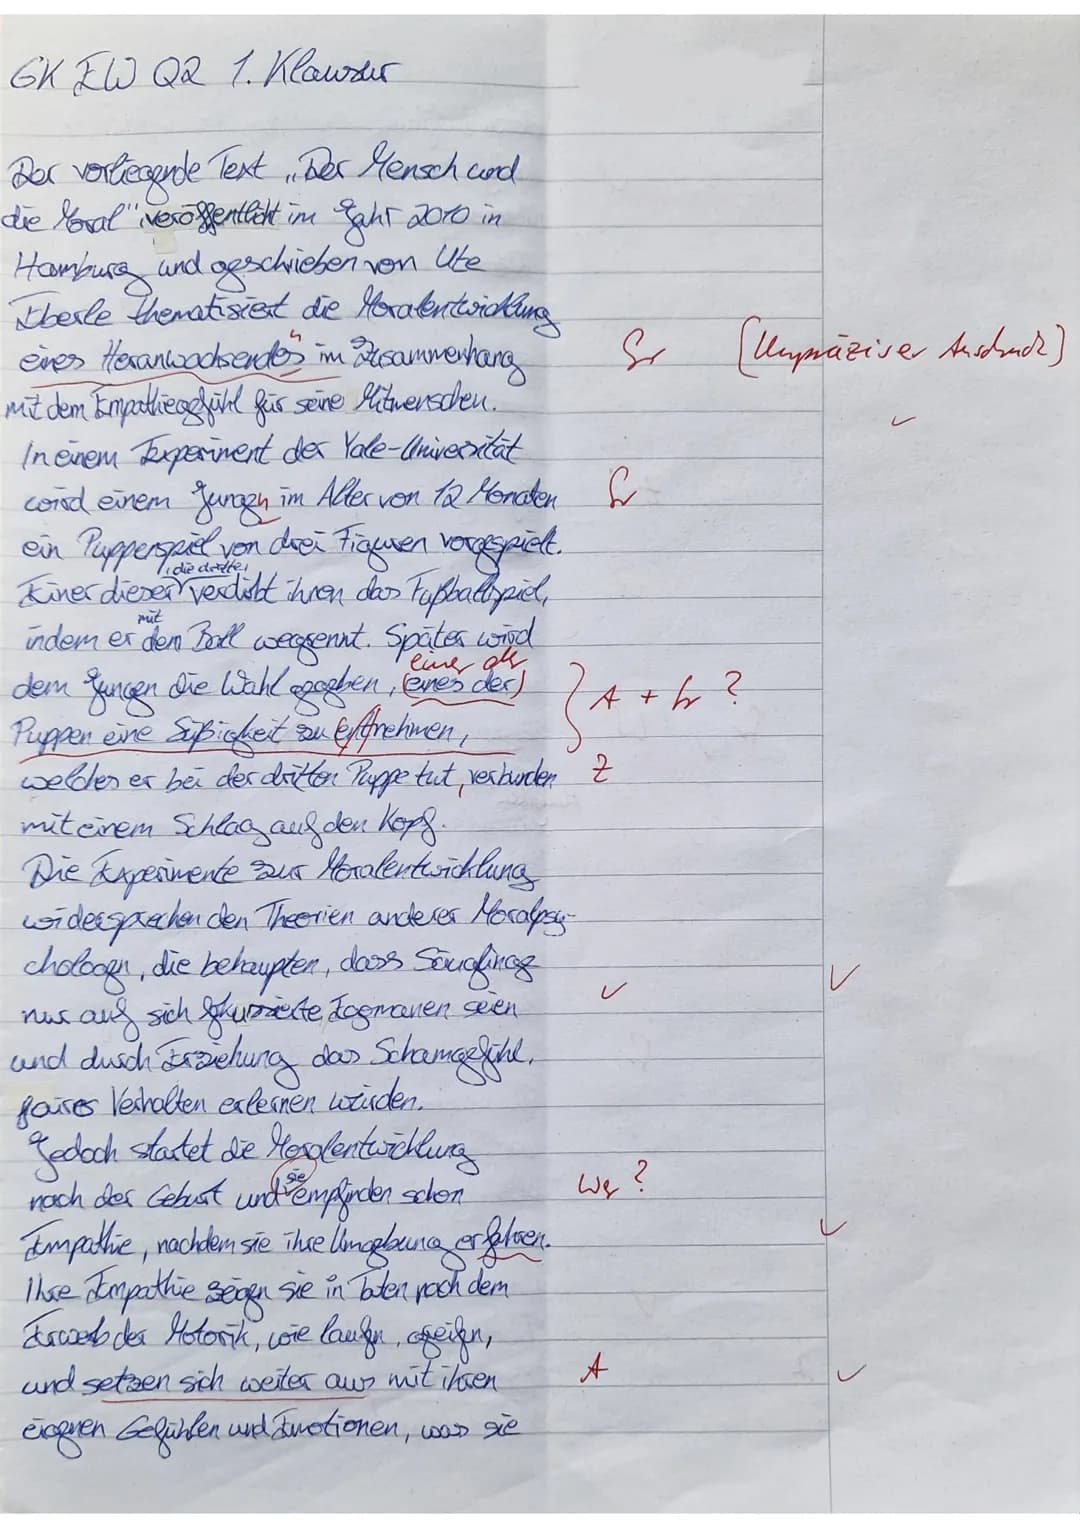 GK EW Q2 1. Klausur
Der vorliegende Text „Der Mensch und
die Moral" veröffentlicht im Jahr 2010 in
Hamburg und geschrieben von Ute
Eberle thematisiert die Moralentwicklung
eines Heranwachsendes n im Zusammenhang Gr [Unpräziser Ausdruck]
mit dem Empathiegefühl für seine Mitmenschen.
In einem Experiment der Yale-Universität
wird einem Jungen im Alter von 12 Monaten Gr
ein Puppenspiel von drei Figuren vorgespielt.
, die dritte,
Einer dieser verdirbt ihnen das Fußballspiel,
mit
indem er dem Ball wegrennt. Später wird
einer der
dem Jungen die Wahl gegeben, (eines der) A + Gr ?
Puppen eine Süßigkeit zu entnehmen,
welches er bei der dritten Puppe tut, verbunden Z
mit einem Schlag auf den Kopf.
Die Experimente zur Moralentwicklung
widersprechen den Theorien anderer Moralpsy-
chologen, die behaupten, dass Säuglinge
nur auf sich fokussierte Egomanen seien
und durch Erziehung das Schamgefühl,
faires Verhalten erlernen würden.
Jedoch startet die Moralentwicklung
sie
nach der Geburt und empfinden schon Wer ?
Empathie, nachdem sie ihre Umgebung erfahren.
Ihre Empathie zeigen sie in Taten nach dem
Erwerb der Motorik, wie laufen, greifen,
und setzen sich weiter aus mit ihren A
eigenen Gefühlen und Emotionen, was sie